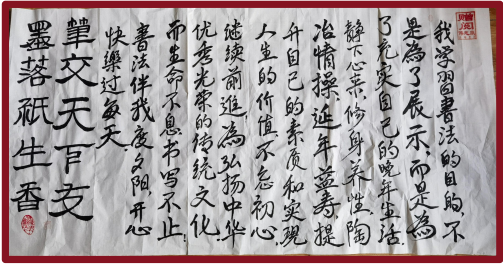 我学習書法的目的,不
是為了展示,而是為
了充实自己的晚年生活.
静下心来,修身养性,陶
冶情操,延年益寿,提
升自己的素质和实現
人生的价值,不忘初心,
继续前進,為弘扬中华
优秀光荣的传统文化
而生命不息书写不止.
書法伴我度夕阳,开心
快樂过每天
筆交天下友
墨落紙生香